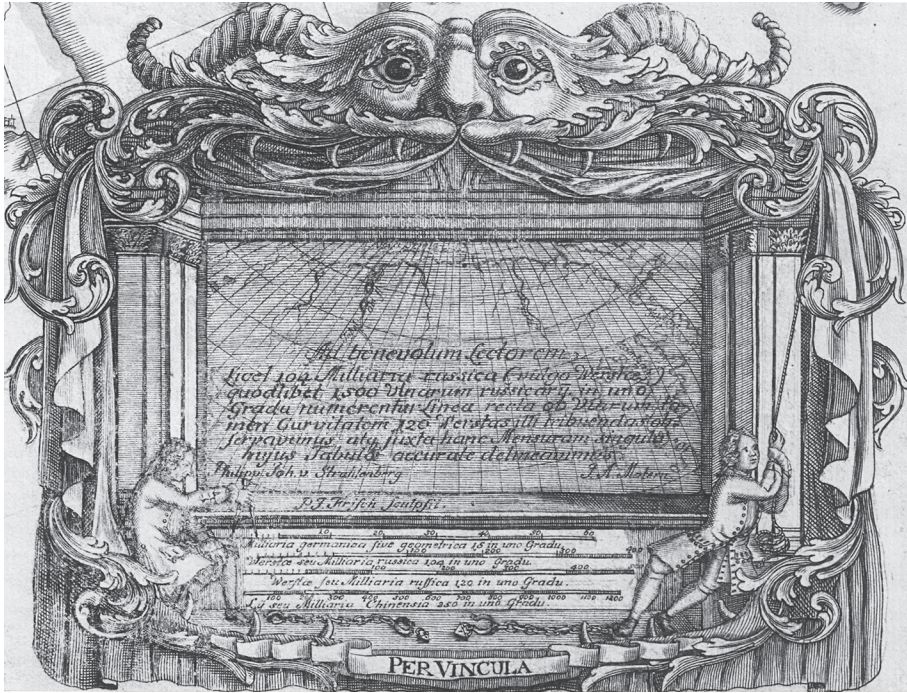 Ad benevolum Lectorem
Licet 104 Milliaria russica (vulgo Werstæ)
quodlibet 1500 Ulnarum russicarū, in uno
Gradu numerentur Linea recta ob Viarum ta
men Curvitatem 120 Verstas illi tribuendas
servavimus atq juxta hanc Mensuram singula
hujus Tabulæ accurate delineavimus
Philipp Joh. v. Strahlenberg J. A. Matern
P. J. Frisch Sculpsit.
10 20 30 40 50 60
Milliaria germanica sive geometrica 15 in uno Gradu
100 200 300 400
Werstæ seu Milliaria russica 104 in uno Gradu
400
Werstæ seu Milliaria russica 120 in uno Gradu.
100 200 300 400 500 600 700 800 900 1000 1100 1200
Ly seu Milliaria Chinensia 250 in uno Gradu
PER VINCULA